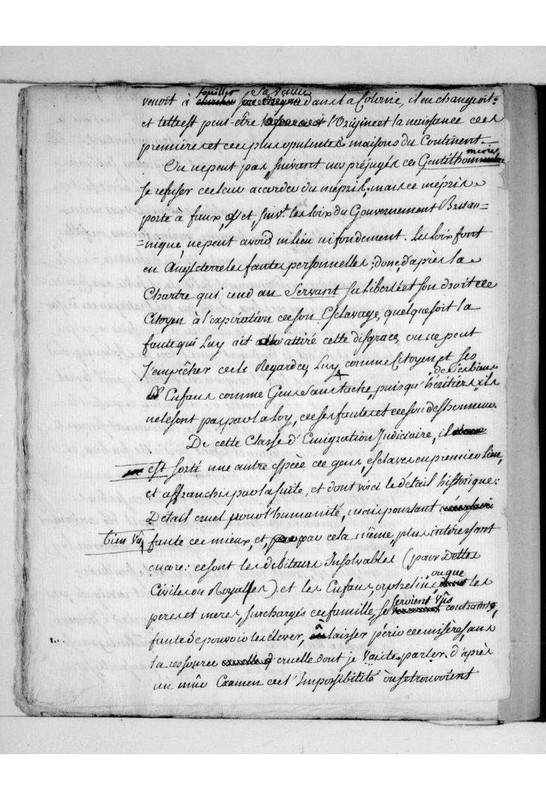 venoit à fouiller sa venue dans la Colonie, il en changeoit:
et telle est peut-être l'Origine et la naissance de ces
premieres et des plus opulentes maisons du Continent.
On ne peut pas, suivant nos préjugés de Gentilhommerie
se refuser de leur accorder du mépris, mais ce mépris
porte à faux, et suiv.t les loix du Gouvernement Britan-
=nique ne peut avoir ni lieu ni fondement. Les loix font
en Angleterre les fautes personnelles; donc, d'après la
Chartre qui rend au Servant sa liberté et son droit de
Citoyen à l'expiration de son Esclavage, quelque soit la
faute qui luy ait attiré cette disgrace, on ne peut
s'empêcher de le Regarder, luy comme Citoyen, et ses
Enfans comme Gens sans tache, puisqu'héritiers de ses biens ils
ne le sont pas par la loy, de ses fautes et de son deshonneur.
De cette Classe d'Emigration Judiciaire, il
est sorti une autre espèce de gens, esclaves en premier lieu,
et affranchis par la suite, et dont voici le détail historique:
Détail cruel pour l'humanité, mais pourtant
bien vu, faute de mieux, et, par cela même, plus intéressant
encore: ce sont les débiteurs Insolvables (pour Dettes
Civiles ou Royalles) et les Enfans, orphelins, ou que les
peres et meres, surchargés de famille, se seroient vus contraints,
faute de pouvoir les élever, laisser périr de misere sans
la ressource cruelle dont je vais te parler. d'après
un mûr Examen de l'Impossibilité où se trouvoient